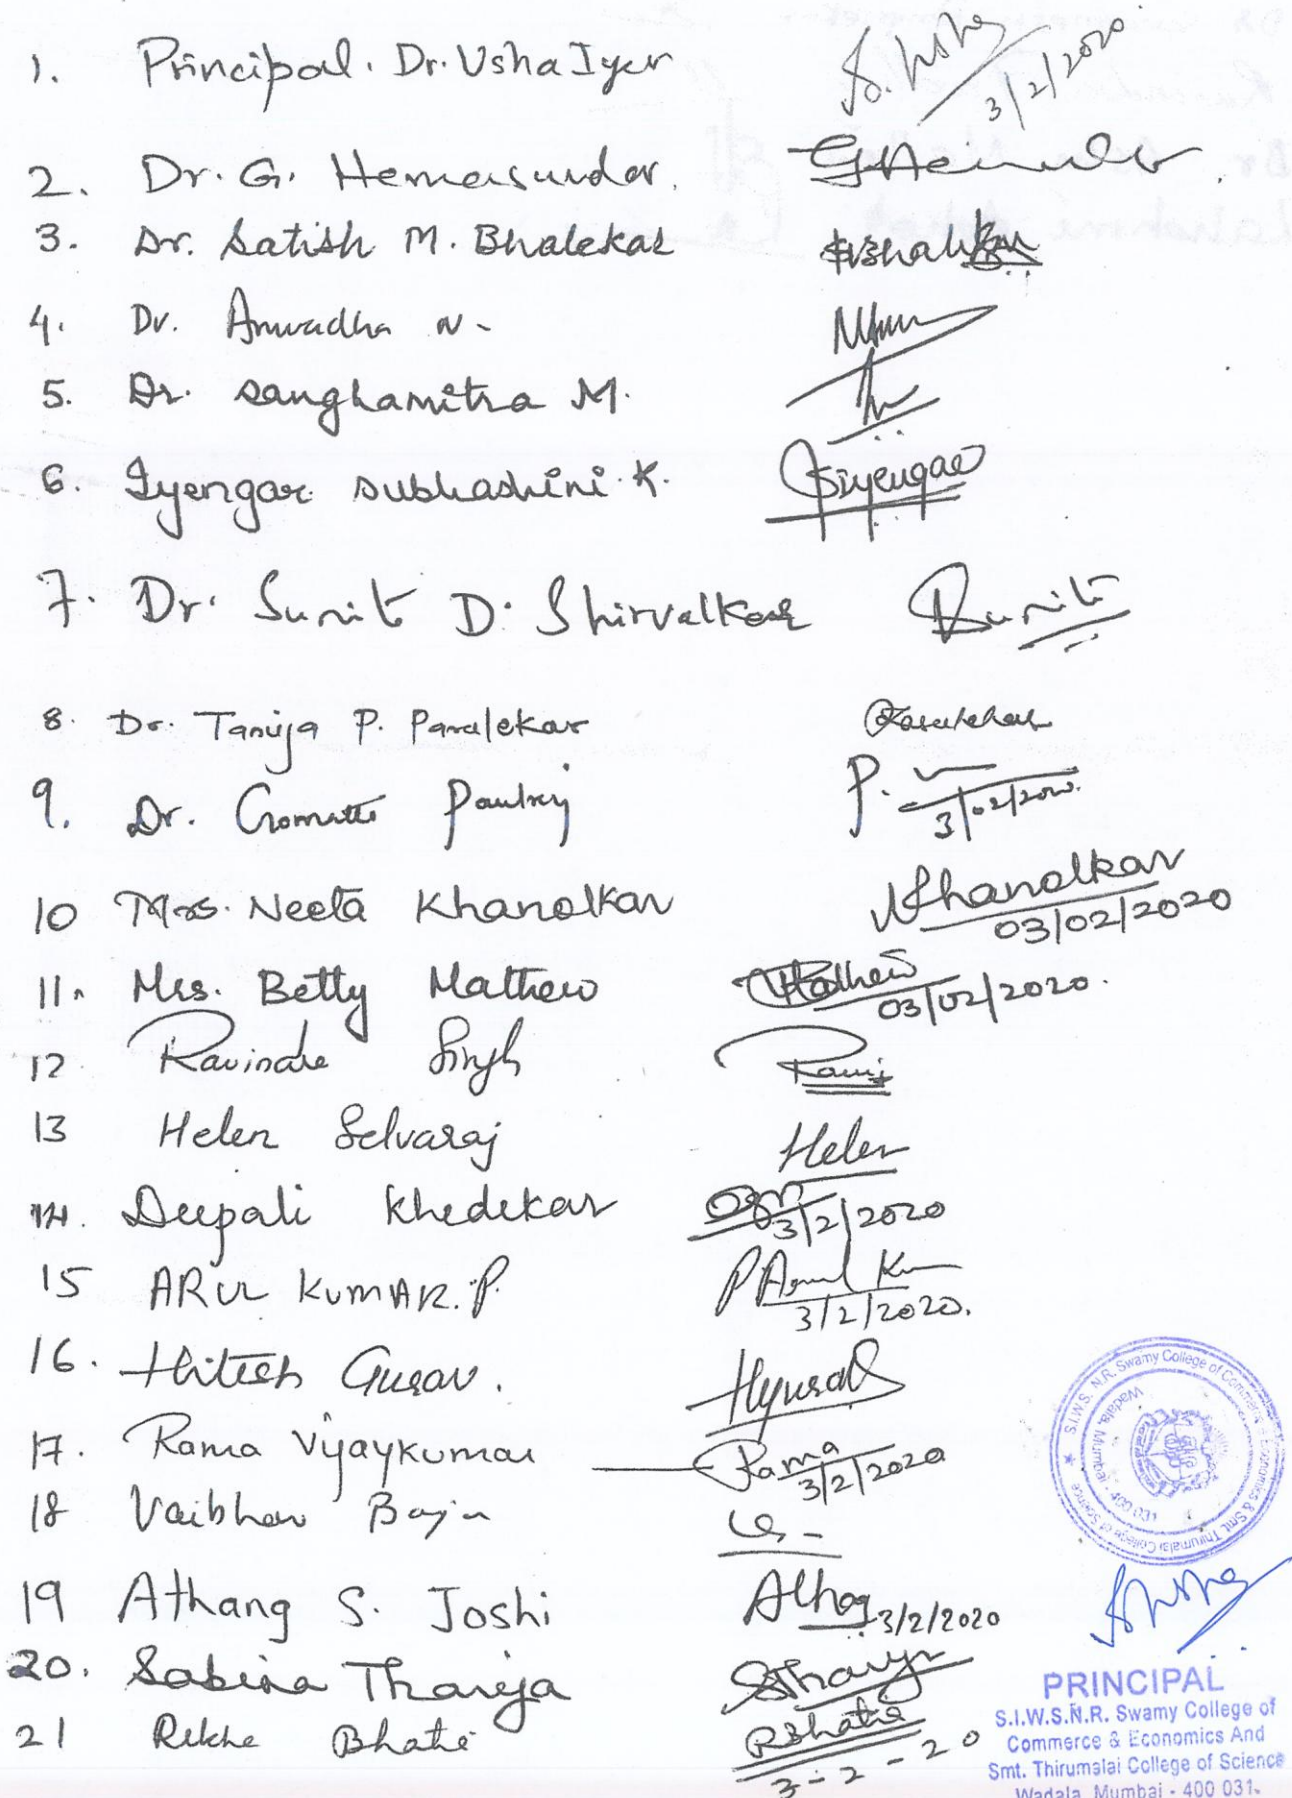 1. Principal. Dr. Usha Iyer 3/2/2020
2. Dr. G. Hemasundar.
3. Dr. Satish M. Bhalekar
4. Dr. Anuradha N-
5. Dr. Sanghamitra M.
6. Iyengar Subhashini K. Siyengar
7. Dr. Sunit D. Shirvalkar Sunit
8. Dr. Tanuja P. Paralekar
9. Dr. Paulraj P. 3/02/2020.
10 Mrs. Neeta Khanolkar NKhanolkar 03/02/2020
11. Mrs. Betty Mathew 03/02/2020.
12 Ravindra Singh
13 Helen Selvaraj Helen
14. Deepali Khedekar 3/2/2020
15 ARUL KUMAR. P. P Arul Kumar 3/2/2020.
16. Hitesh Gurav.
17. Rama Vijaykumar Rama 3/2/2020
18 Vaibhav
19 Athang S. Joshi 3/2/2020
20. Sabina Thareja
21 Rekha Bhatia RBhatia 3-2-20
S.I.W.S. N.R. Swamy College of Commerce & Economics & Smt. Thirumalai College of Science
Wadala, Mumbai - 400 031
PRINCIPAL
S.I.W.S.N.R. Swamy College of
Commerce & Economics And
Smt. Thirumalai College of Science
Wadala, Mumbai - 400 031.